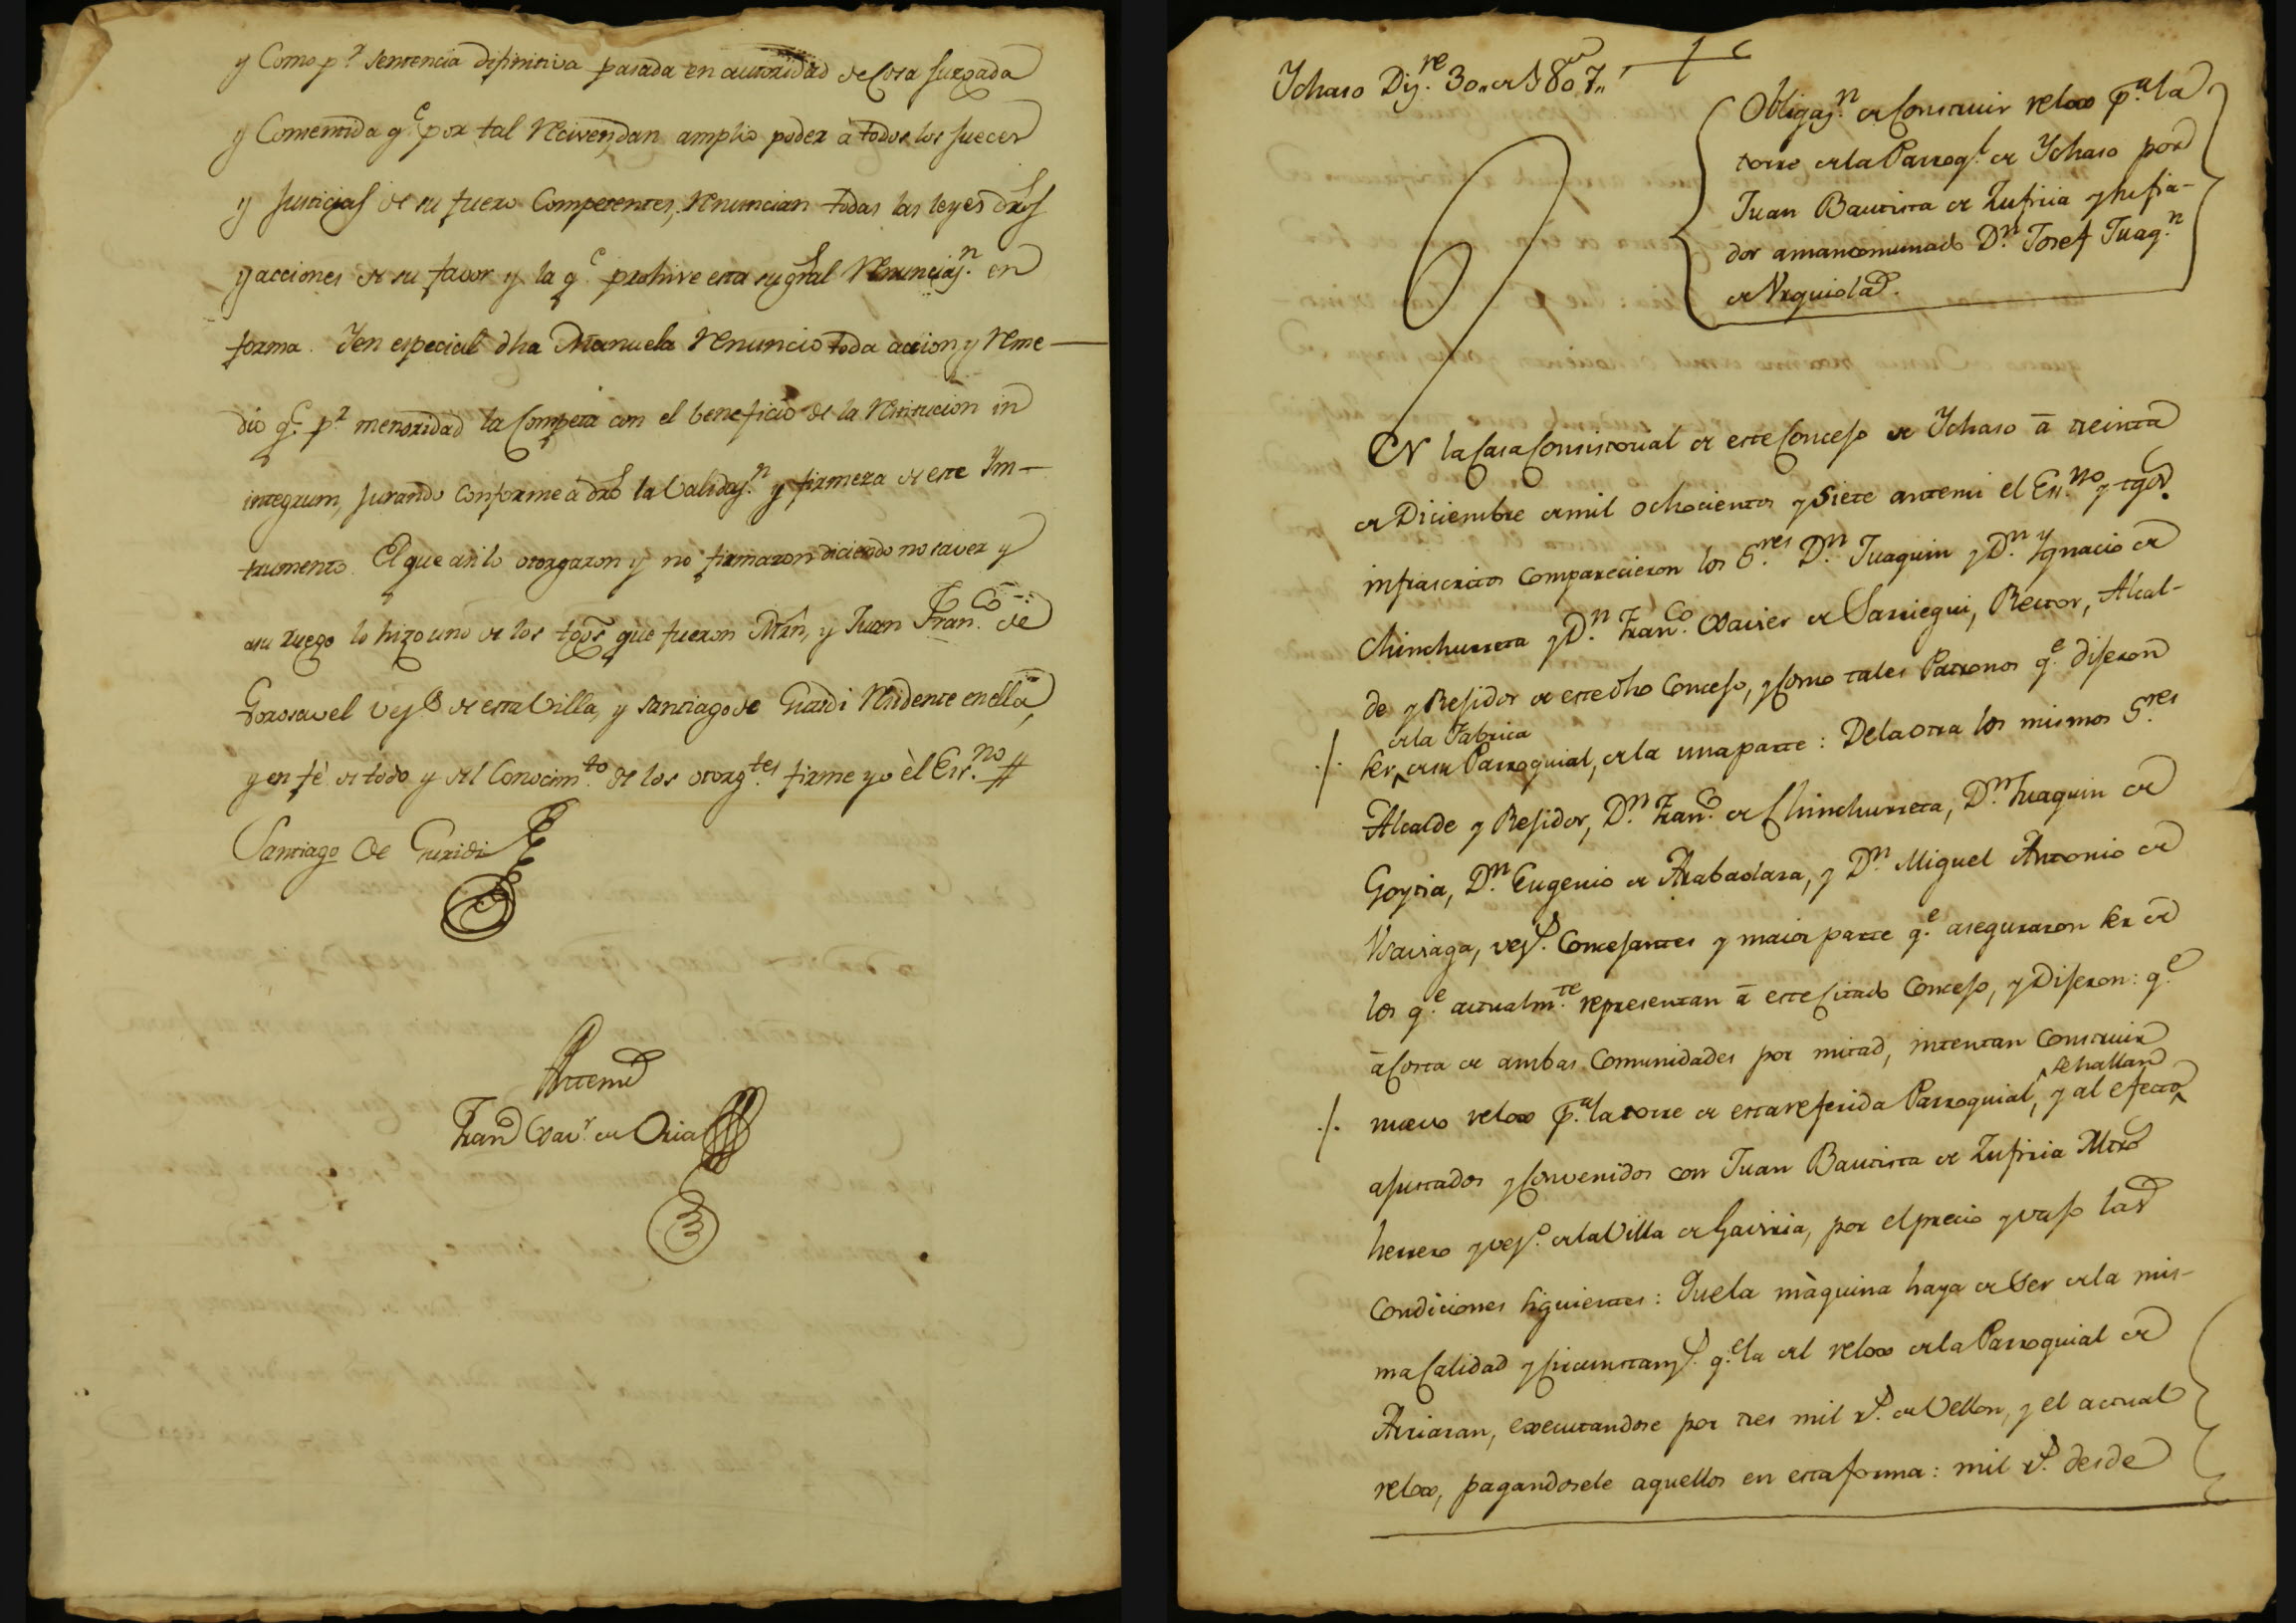 y Como p.r sentencia difinitiva pasada en autoridad de Cosa Juzgada
y Comentida q.e por tal reciven, dan amplio poder â todos los Jueces
y Justicias de su fuero Competentes, renuncian todas las leyes dros
y acciones de su favor y la q.e prohive esta su gral renunciaz.n en
forma. Y en especial dha Manuela renunció toda accion y reme-
dio q.e p.r menoridad la Competa con el beneficio de la restitucion in
integrum, Jurando conforme â dro la Validaz.n y firmeza de este Yns-
trumento. El que asi lo otorgaron y no firmaron diciendo no saver y
a su ruego lo hizo uno de los tgos que fueron Mrn, y Juan Fran.co de
Gorosavel vez.s de esta Villa, y Santiago de Guridi residente en ella,
y en fé de todo y del Conocim.to de los otorg.tes firme yo él Es.no #
Santiago de Guridi
Antemi
Fran.co Xav.r de Oria
Ychaso Diz.re 30,, de 1807,,
Obligaz.n de Construir relox p.a la
torre de la Parroq.l de Ychaso por
Juan Bautista de Zufiria y su fia-
dor amancomunado D.n Josef Juaq.n
de Urquiola.
EN la Casa Consistorial de este Concejo de Ychaso â treinta
de Diciembre de mil ochocientos y Siete antemi el Es.no y tgos.
infrascritos comparecieron los S.res D.n Juaquin y D.n Ygnacio de
Chinchurreta y D.n Fran.co Xavier de Sarriegui, Rector, Alcal-
de y Regidor de este dho Concejo, y como tales Patronos q.e dijeron
de la Fabrica
./. ser de su Parroquial, de la una parte: De la otra los mismos S.res
Alcalde y Regidor, D.n Fran.co de Chinchurreta, D.n Juaquin de
Goytia, D.n Eugenio de Arabaolaza, y D.n Miguel Antonio de
vez.s Concejantes y maior parte q.e aseguraron ser de
los q.e actualm.te representan â este citado Concejo, y Dijeron: q.e
â costa de ambas Comunidades por mitad, intentan Construir
se hallan
./. nuevo relox p.a la torre de esta referida Parroquial, y al efecto
ajustados y convenidos con Juan Bautista de Zufiria Mtro
herrero y vez.o de la Villa de Gaviria, por el precio y vajo las
Condiciones siguientes: Que la màquina haya de Ser de la mis-
ma Calidad y circunstanz.s q.e la del relox de la Parroquial de
Arriaran, executandose por tres mil r.s de Vellon, y el actual
relox, pagandosele aquellos en esta forma: mil r.s desde